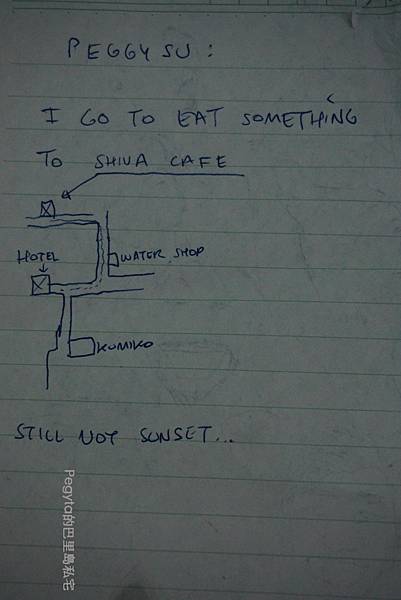 PEGGY SU :
I GO TO EAT SOMETHING
TO SHIVA CAFE
HOTEL
WATER SHOP
KUMIKO
STILL NOT SUNSET...
Pegyta的巴里島私宅